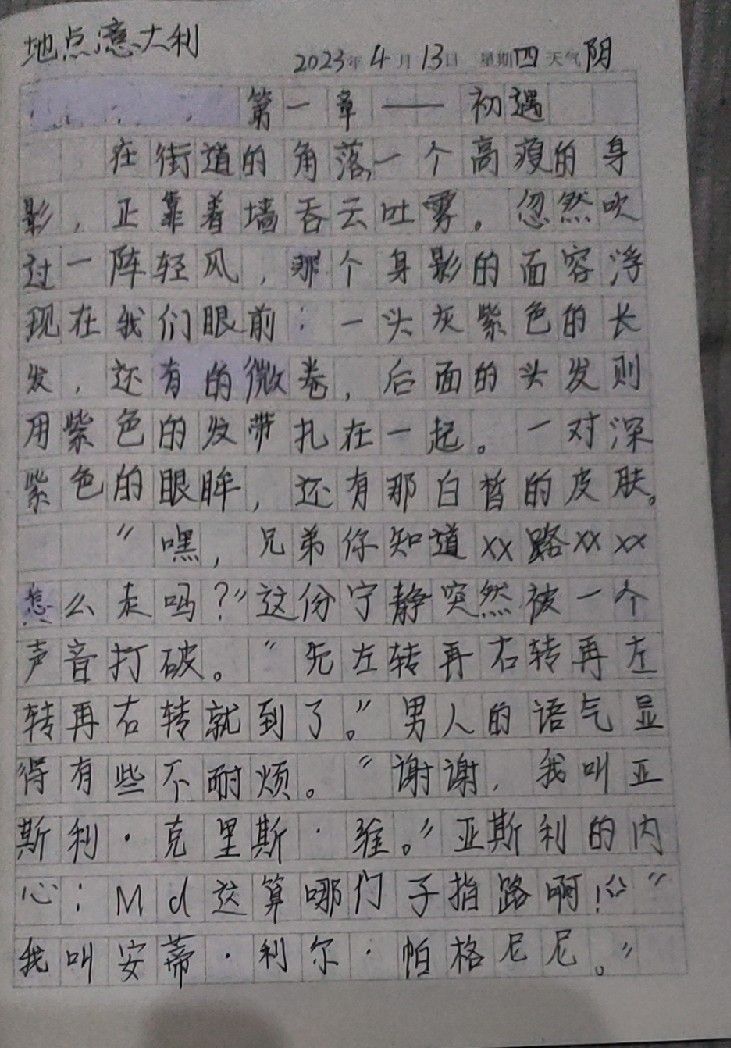 地点意大利
2023年4月13日 星期四 天气阴
第一章——初遇
在街道的角落,一个高瘦的身
影,正靠着墙吞云吐雾。忽然吹
过一阵轻风,那个身影的面容浮
现在我们眼前:一头灰紫色的长
发,还有的微卷,后面的头发则
用紫色的发带扎在一起。一对深
紫色的眼眸,还有那白皙的皮肤。
“嘿,兄弟你知道xx路xxxx
怎么走吗?”这份宁静突然被一个
声音打破。“先左转再右转再左
转再右转就到了。”男人的语气显
得有些不耐烦。“谢谢,我叫亚
斯利·克里斯·维。”亚斯利的内
心:Md这算哪门子指路啊!“
我叫安蒂·利尔·帕格尼尼。”